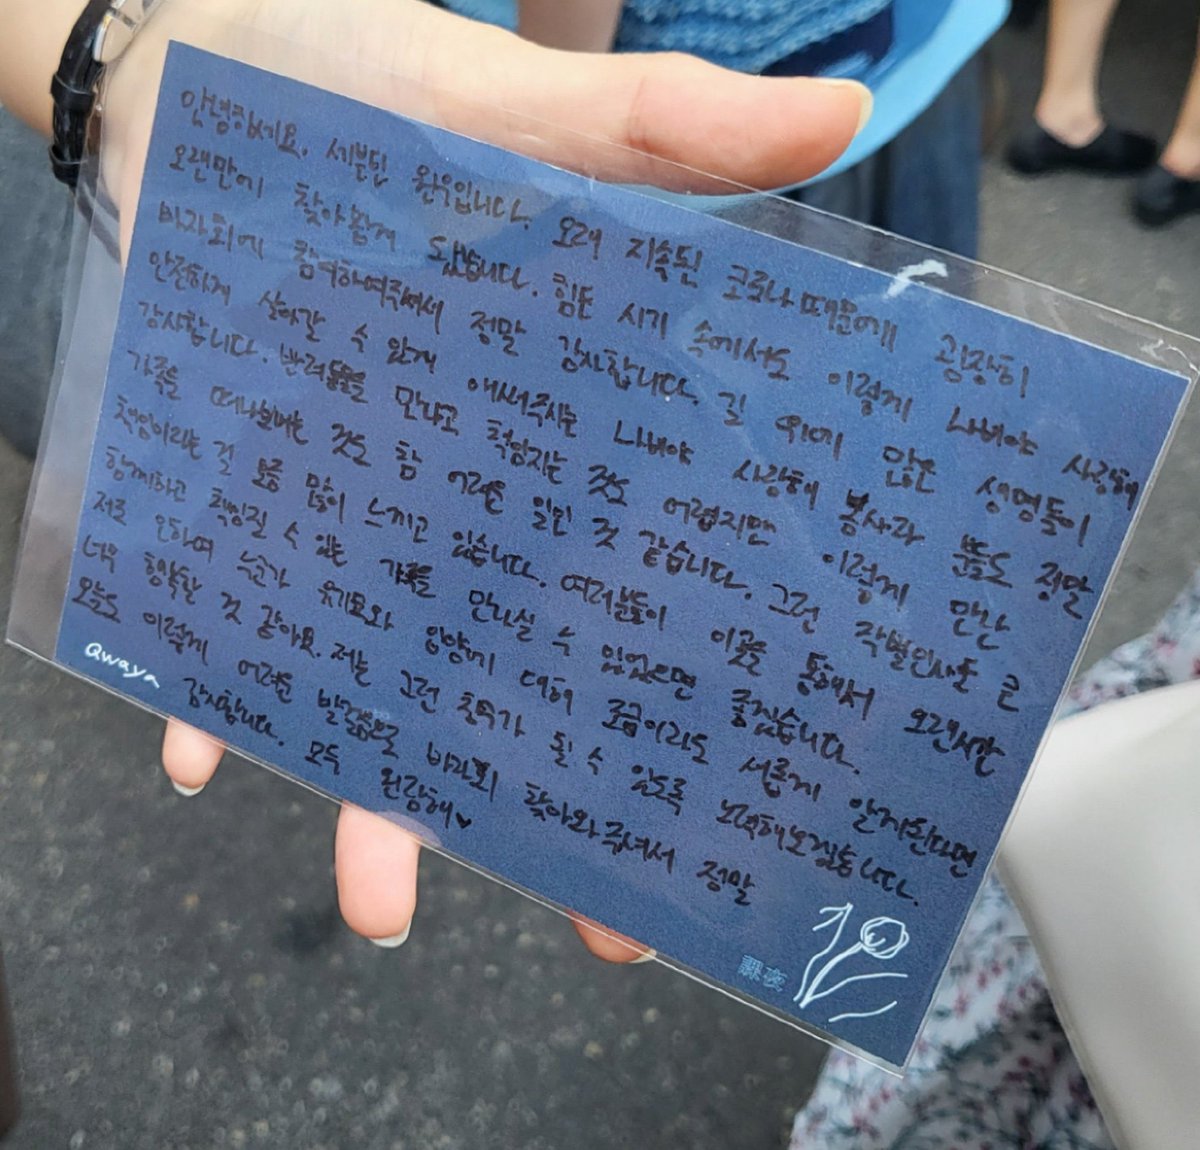 안녕하세요. 세븐틴 원우입니다. 오래 지속된 코로나 때문에 굉장히
오랜만에 찾아뵙게 되었습니다. 힘든 시기 속에서도 이렇게 나비야 사랑해
바자회에 참여하여주셔서 정말 감사합니다. 길 위에 많은 생명들이
안전하게 살아갈 수 있게 애써주시는 나비야 사랑해 봉사자 분들도 정말
감사합니다. 반려동물을 만나고 책임지는 것도 어렵지만 이렇게 만난
가족을 떠나보내는 것도 참 어려운 일인 것 같습니다. 그런 작별인사도 큰
책임이라는 걸 요즘 많이 느끼고 있습니다. 여러분들이 이곳을 통해서 오랜시간
함께하고 책임질 수 있는 가족을 만나실 수 있었으면 좋겠습니다.
저로 인하여 누군가 유기묘와 입양에 대해 조금이라도 새롭게 알게된다면
너무 행복할 것 같아요. 저는 그런 될 수 있도록 노력해보겠습니다.
오늘도 이렇게 어려운 발걸음으로 바자회 찾아와주셔서 정말
감사합니다. 모두 원랑해♥
Qwaya
課夜